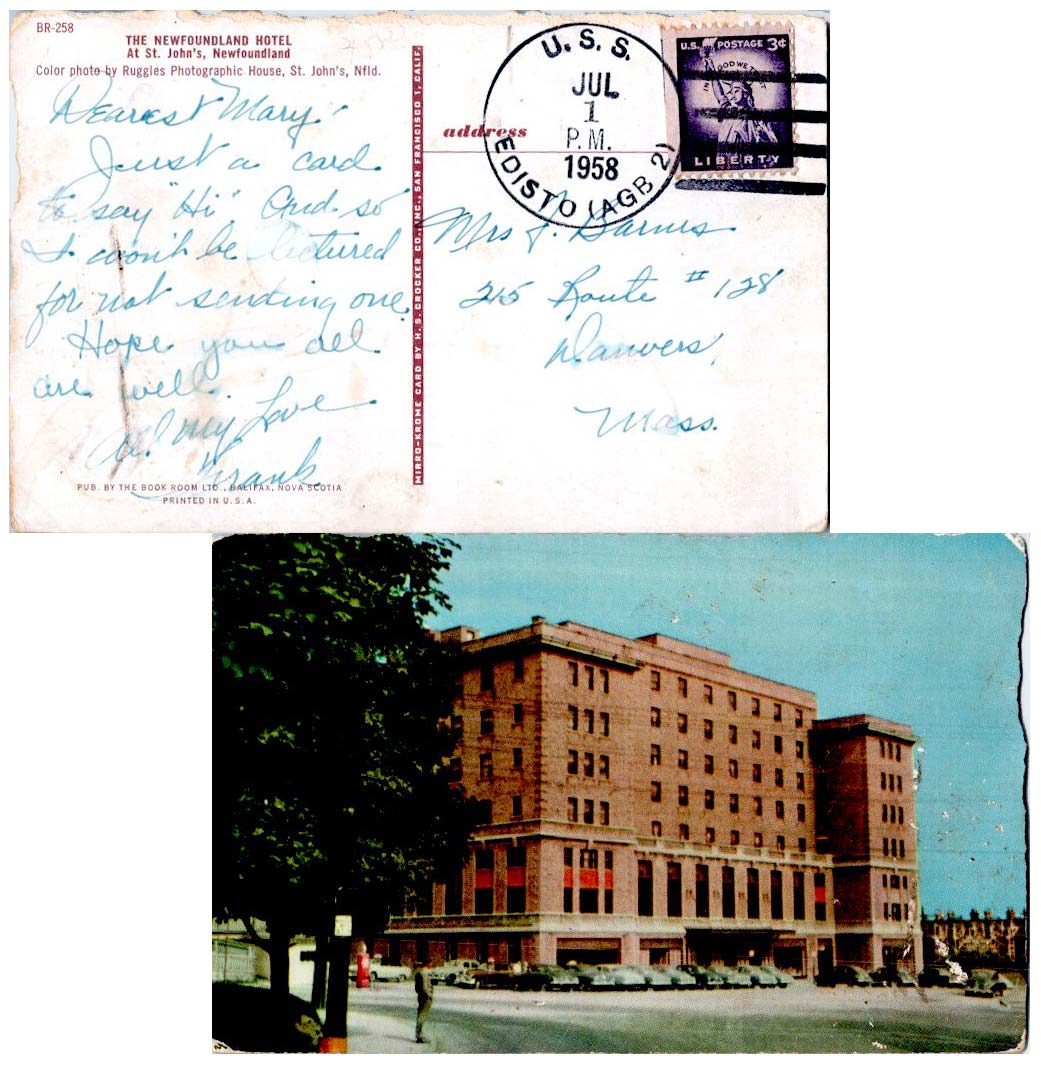 BR-258
THE NEWFOUNDLAND HOTEL
At St. John's, Newfoundland
Color photo by Ruggles Photographic House, St. John's, Nfld.
Dearest Mary:
Just a card
to say "Hi". And so
I won't be lectured
for not sending one.
Hope you all
are well.
All my Love
Frank
PUB. BY THE BOOK ROOM LTD., HALIFAX, NOVA SCOTIA
PRINTED IN U.S.A.
MIRRO-KROME CARD BY H. S. CROCKER CO., INC., SAN FRANCISCO 1, CALIF.
address
U. S. S.
JUL
1
P.M.
1958
EDISTO (AGB 2)
U.S. POSTAGE 3¢
IN GOD WE TRUST
LIBERTY
Mrs J. Barnes
215 Route # 128
Danvers,
Mass.